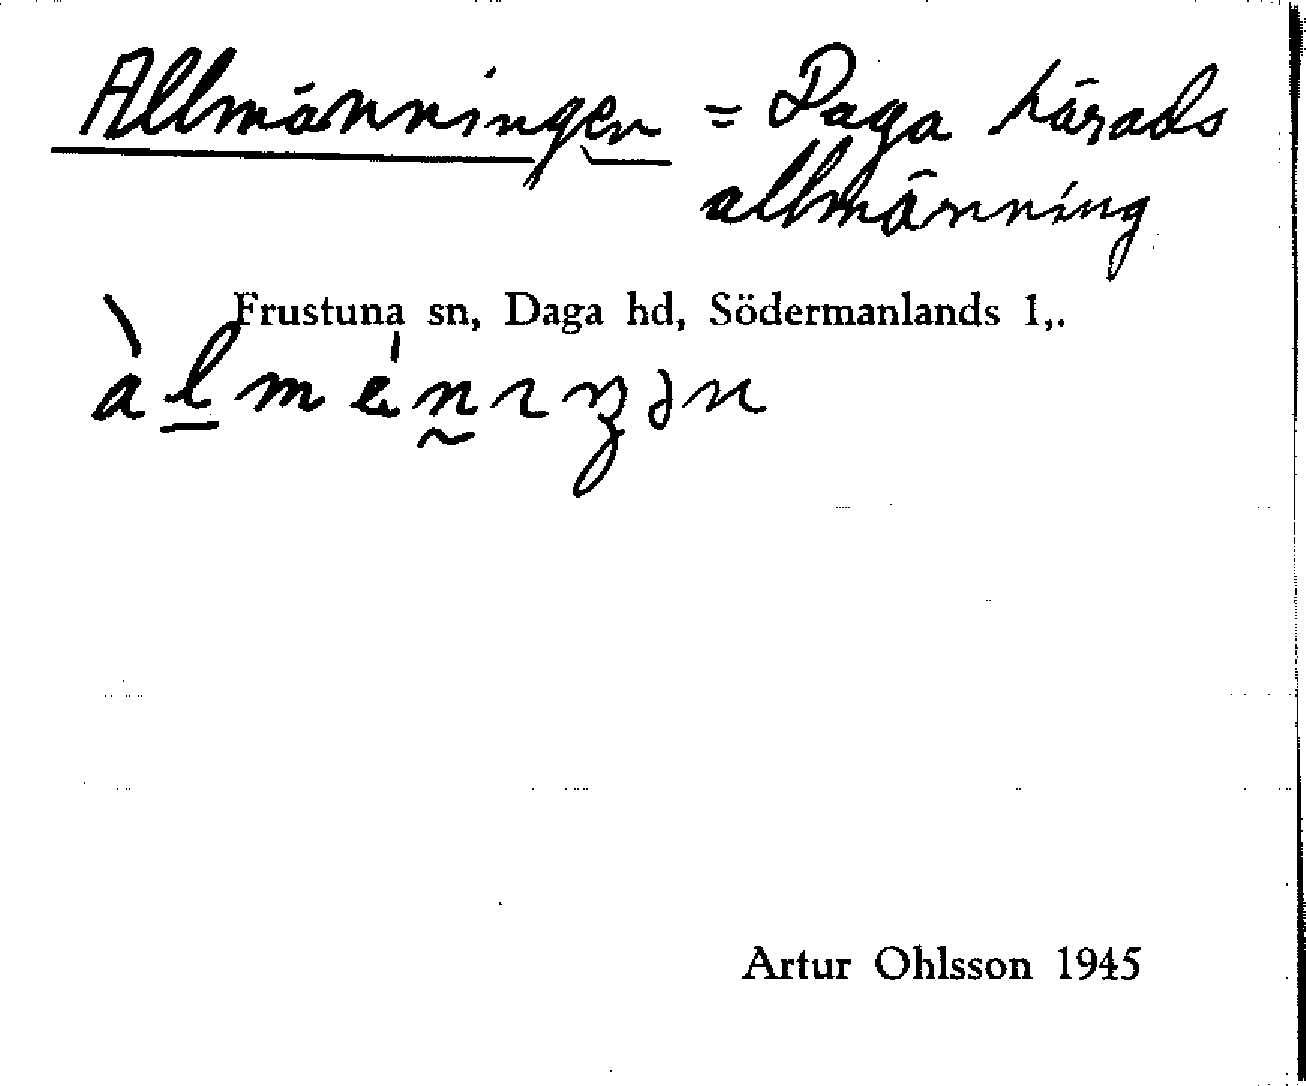 Allmänningen = Daga härads
allmänning
Frustuna sn, Daga hd, Södermanlands l,.
Artur Ohlsson 1945